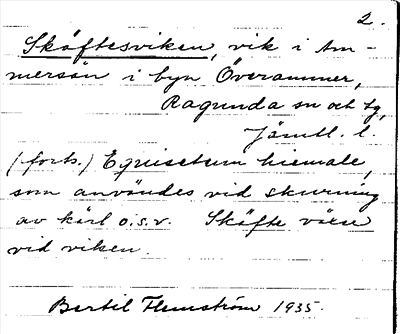 2.
Skäftesviken, vik i Am-
mersön i byn Överammer,
Ragunda sn och tg,
Jämtl. l
(forts.) Equisetum hiemale,
som användes vid skurning
av kärl o.s.v. Skäfte växer
vid viken.
Bertil Flemström 1935.